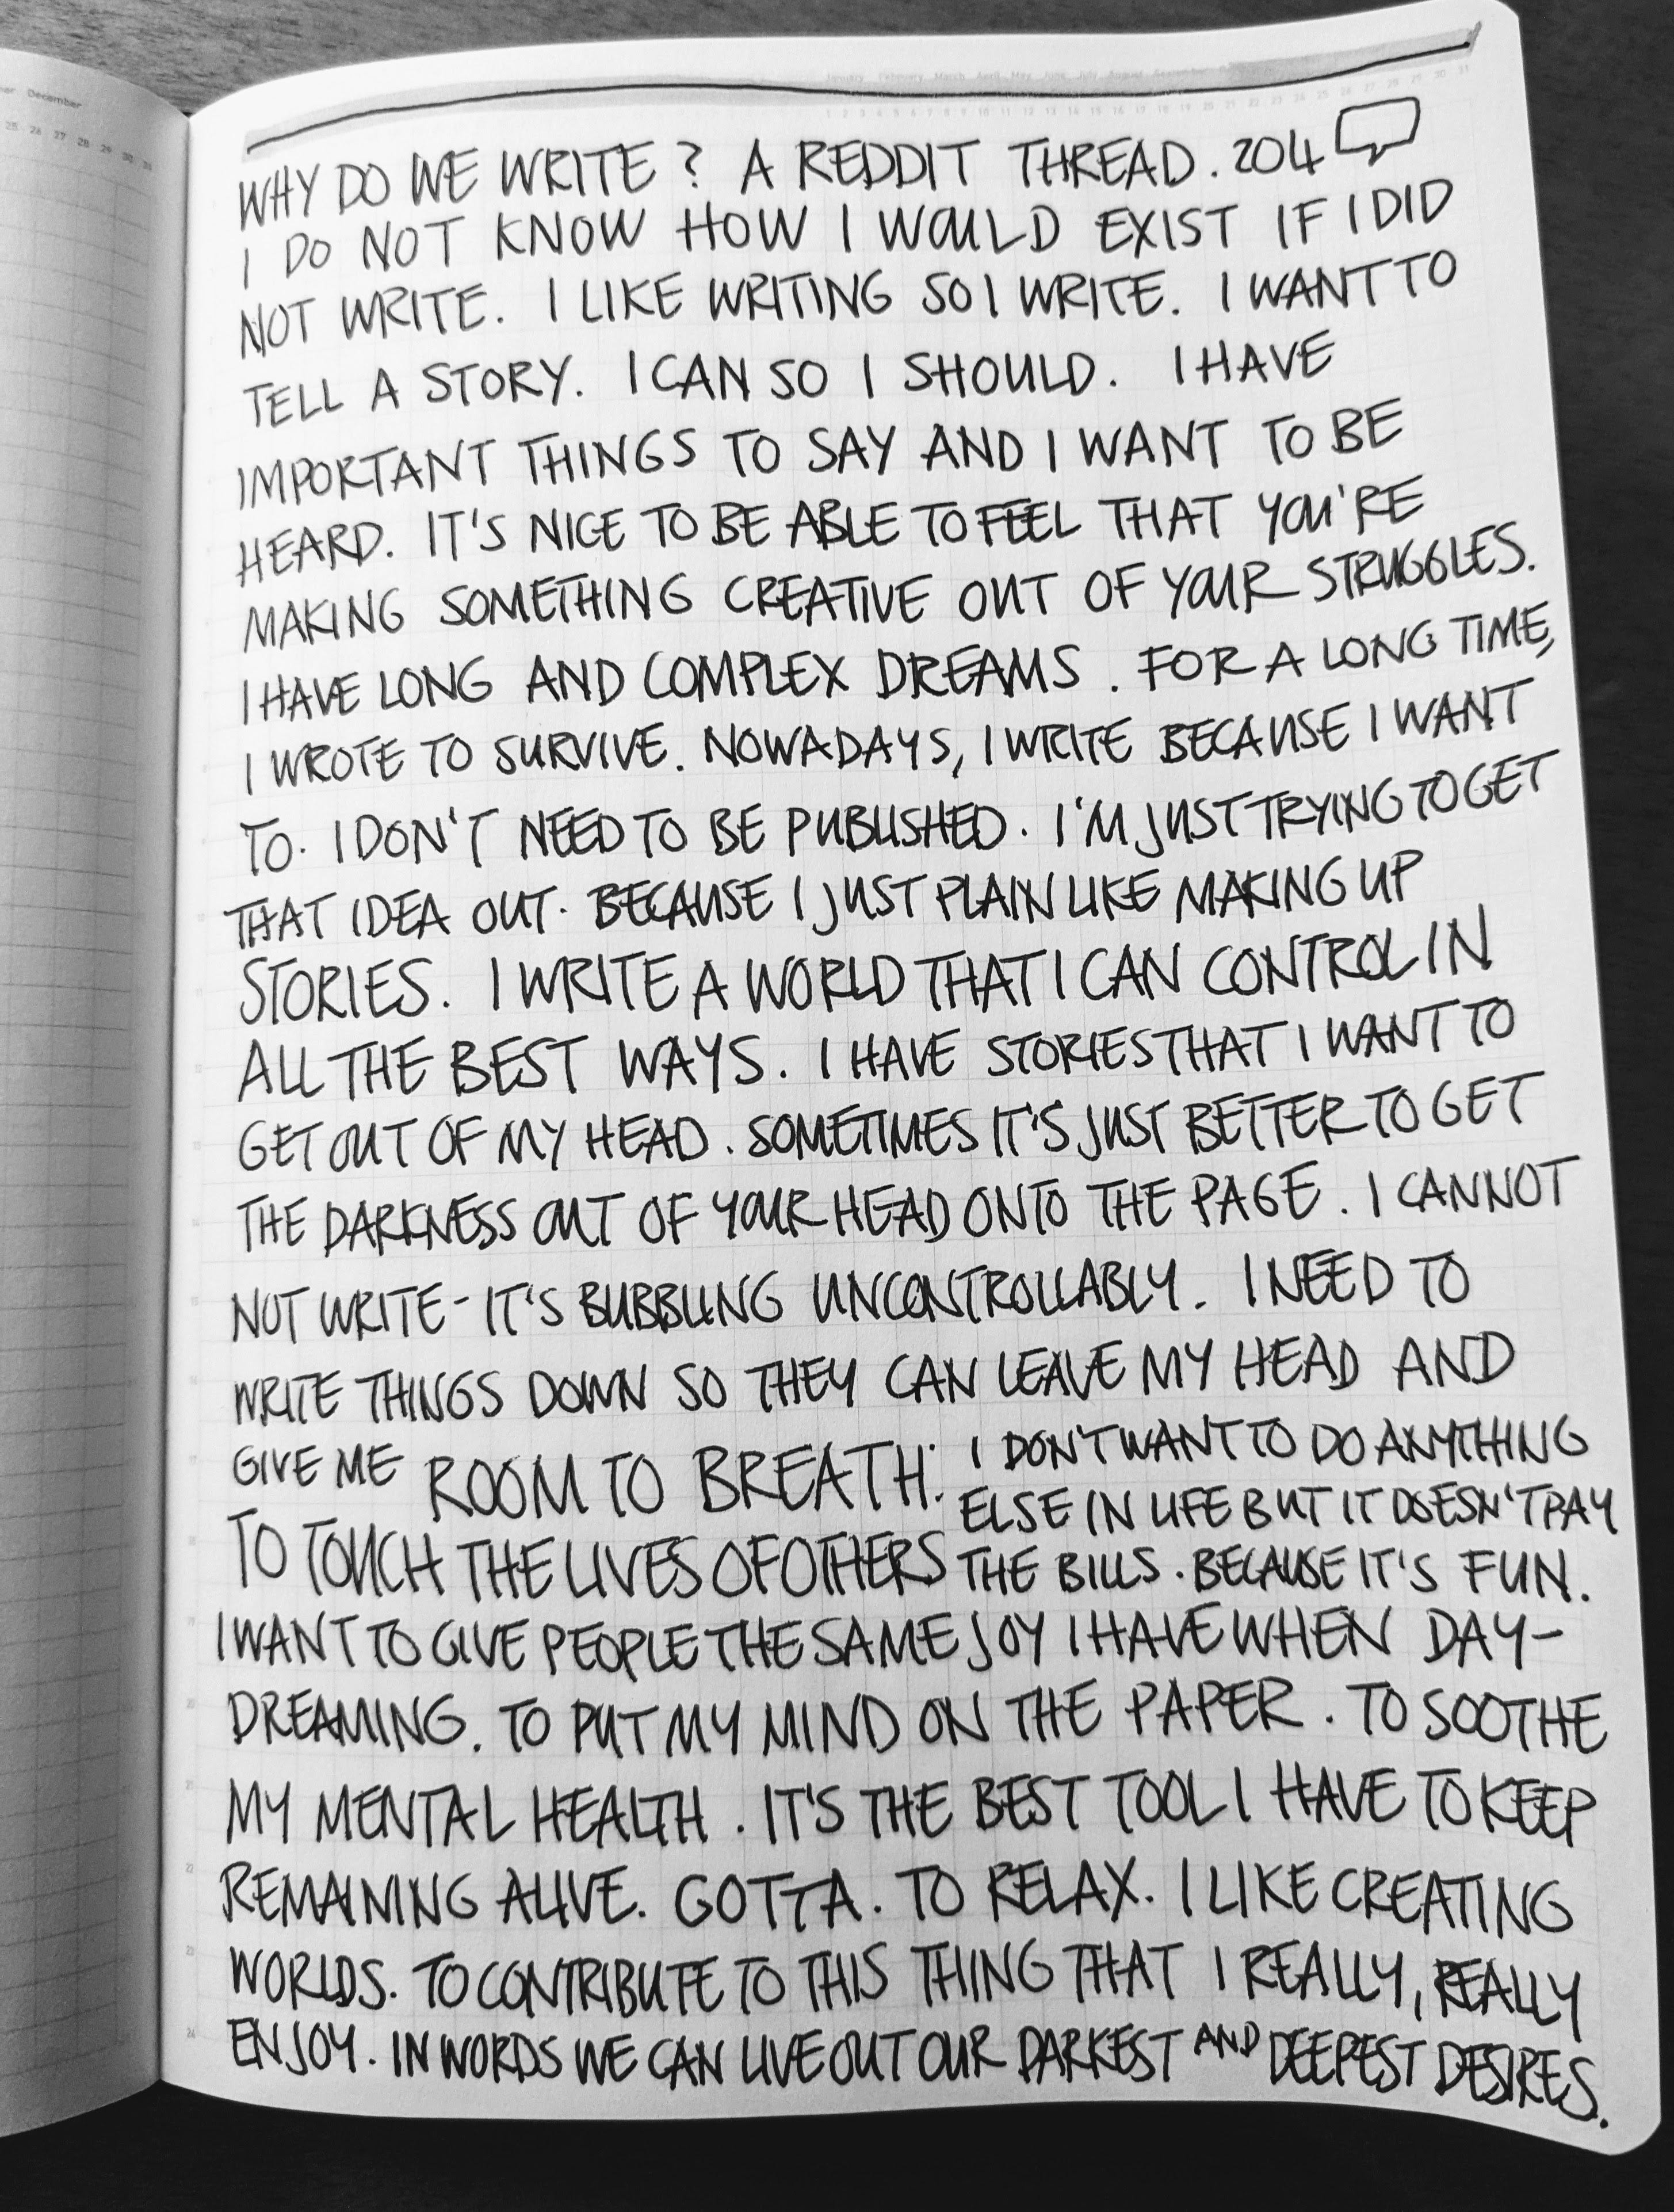 er December
25 26 27 28 29 30 31
January February March April May June July August September
1 2 3 4 5 6 7 8 9 10 11 12 13 14 15 16 17 18 19 20 21 22 23 24 25 26 27 28 29 30 31
WHY DO WE WRITE? A REDDIT THREAD. 204
I DO NOT KNOW HOW I WOULD EXIST IF I DID
NOT WRITE. I LIKE WRITING SO I WRITE. I WANT TO
TELL A STORY. I CAN SO I SHOULD. I HAVE
IMPORTANT THINGS TO SAY AND I WANT TO BE
HEARD. IT'S NICE TO BE ABLE TO FEEL THAT YOU'RE
MAKING SOMETHING CREATIVE OUT OF YOUR STRUGGLES.
I HAVE LONG AND COMPLEX DREAMS. FOR A LONG TIME,
I WROTE TO SURVIVE. NOWADAYS, I WRITE BECAUSE I WANT
TO. I DON'T NEED TO BE PUBLISHED. I'M JUST TRYING TO GET
THAT IDEA OUT. BECAUSE I JUST PLAIN LIKE MAKING UP
STORIES. I WRITE A WORLD THAT I CAN CONTROL IN
ALL THE BEST WAYS. I HAVE STORIES THAT I WANT TO
GET OUT OF MY HEAD. SOMETIMES IT'S JUST BETTER TO GET
THE DARKNESS OUT OF YOUR HEAD ONTO THE PAGE. I CANNOT
NOT WRITE - IT'S BUBBLING UNCONTROLLABLY. I NEED TO
WRITE THINGS DOWN SO THEY CAN LEAVE MY HEAD AND
GIVE ME ROOM TO BREATH. I DON'T WANT TO DO ANYTHING
ELSE IN LIFE BUT IT DOESN'T PAY
TO TOUCH THE LIVES OF OTHERS THE BILLS. BECAUSE IT'S FUN.
I WANT TO GIVE PEOPLE THE SAME JOY I HAVE WHEN DAY-
DREAMING. TO PUT MY MIND ON THE PAPER. TO SOOTHE
MY MENTAL HEALTH. IT'S THE BEST TOOL I HAVE TO KEEP
REMAINING ALIVE. GOTTA. TO RELAX. I LIKE CREATING
WORLDS. TO CONTRIBUTE TO THIS THING THAT I REALLY, REALLY
ENJOY. IN WORDS WE CAN LIVE OUT OUR DARKEST AND DEEPEST DESIRES.